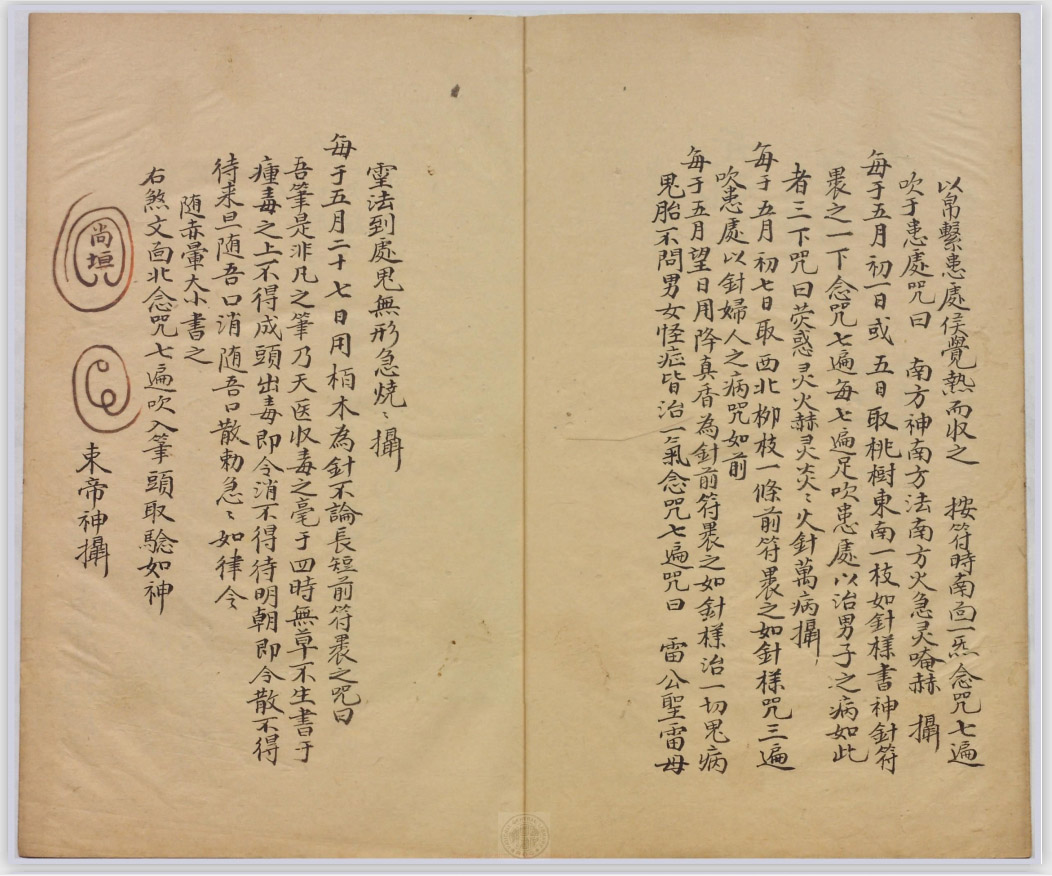 以帛繫患處侯覺熱而收之　按符時南面一炁念咒七遍
吹于患處咒曰　南方神南方法南方火急灵唵赫　攝
每于五月初一日或五日取桃樹東南一枝如針樣書神針符
畏之一下念咒七遍每七遍足吹患處以治男子之病如此
者三下咒曰荧惑灵火赫灵炎〻火針萬病攝
每于五月初七日取西北柳枝一條前符畏之如針樣咒三遍
吹患處以針婦人之病咒如前
每于五月望日用降真香為針前符畏之如針樣治一切鬼病
鬼胎不問男女怪症皆治一氣念咒七遍咒曰　雷公聖雷母
霊法到處鬼無形急燒〻攝
每于五月二十七日用栢木為針不論長短前符畏之咒曰
吾筆是非凡之筆乃天医收毒之毫于四時無草不生書于
瘇毒之上不得成頭出毒即令消不得待明朝即令散不得
待来旦随吾口消随吾口散勅急〻如律令
随赤暈大小書之
右煞文面北念咒七遍吹入筆頭取驗如神
尚垣
東帝神攝